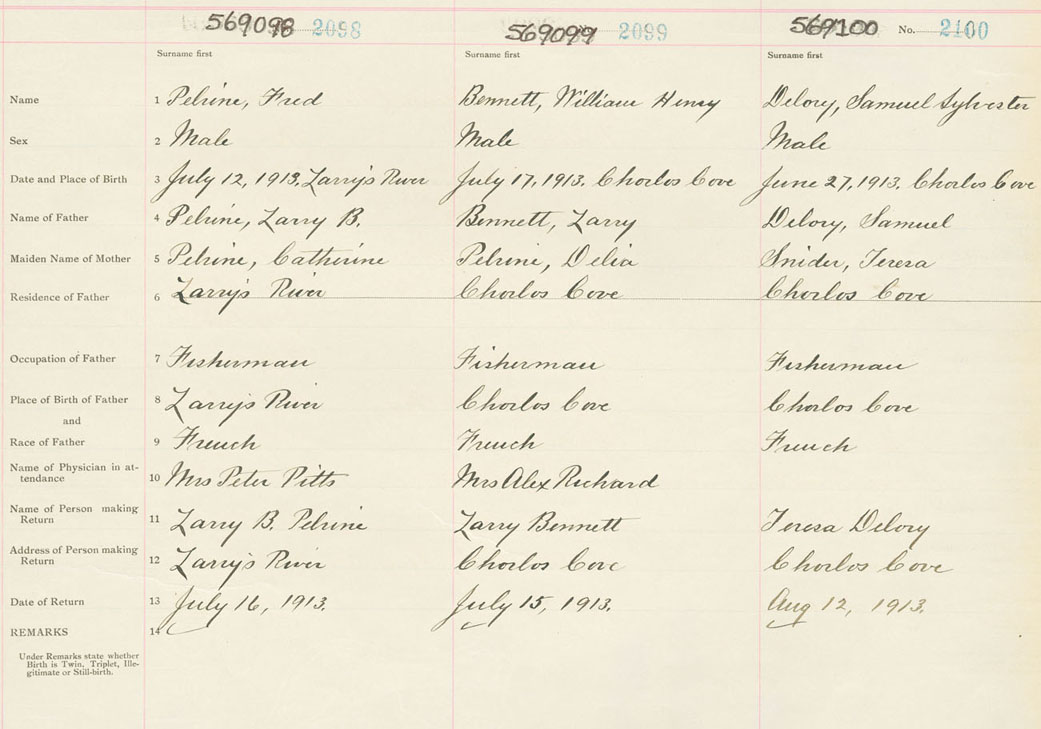 569098 2098 569099 2099 569100 No. 2100
Surname first Surname first Surname first
Name 1 Pelrine, Fred Bennett, William Henry Delory, Samuel Sylvester
Sex 2 Male Male Male
Date and Place of Birth 3 July 12, 1913. Larry's River July 17, 1913. Charlos Cove June 27, 1913. Charlos Cove
Name of Father 4 Pelrine, Larry B. Bennett, Larry Delory, Samuel
Maiden Name of Mother 5 Pelrine, Catherine Pelrine, Delia Snider, Teresa
Residence of Father 6 Larry's River Charlos Cove Charlos Cove
Occupation of Father 7 Fisherman Fisherman Fisherman
Place of Birth of Father 8 Larry's River Charlos Cove Charlos Cove
and
Race of Father 9 French French French
Name of Physician in at-
tendance 10 Mrs Peter Pitts Mrs Alex Richard
Name of Person making
Return 11 Larry B. Pelrine Larry Bennett Teresa Delory
Address of Person making
Return 12 Larry's River Charlos Cove Charlos Cove
Date of Return 13 July 16, 1913. July 15, 1913. Aug 12, 1913.
REMARKS 14
Under Remarks state whether
Birth is Twin, Triplet, Ille-
gitimate or Still-birth.